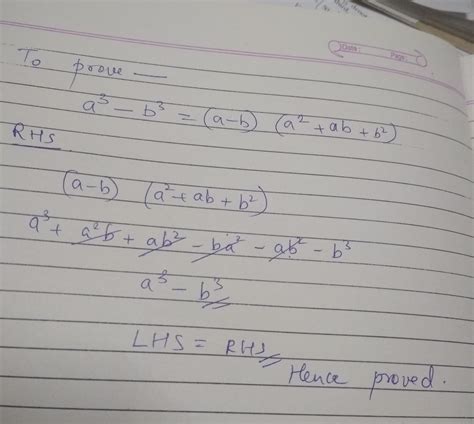 To prove —
a³ - b³ = (a-b) (a² + ab + b²)
RHS
(a-b) (a² + ab + b²)
a³ + a²b + ab² - ba² - ab² - b³
a³ - b³
LHS = RHS
Hence proved.